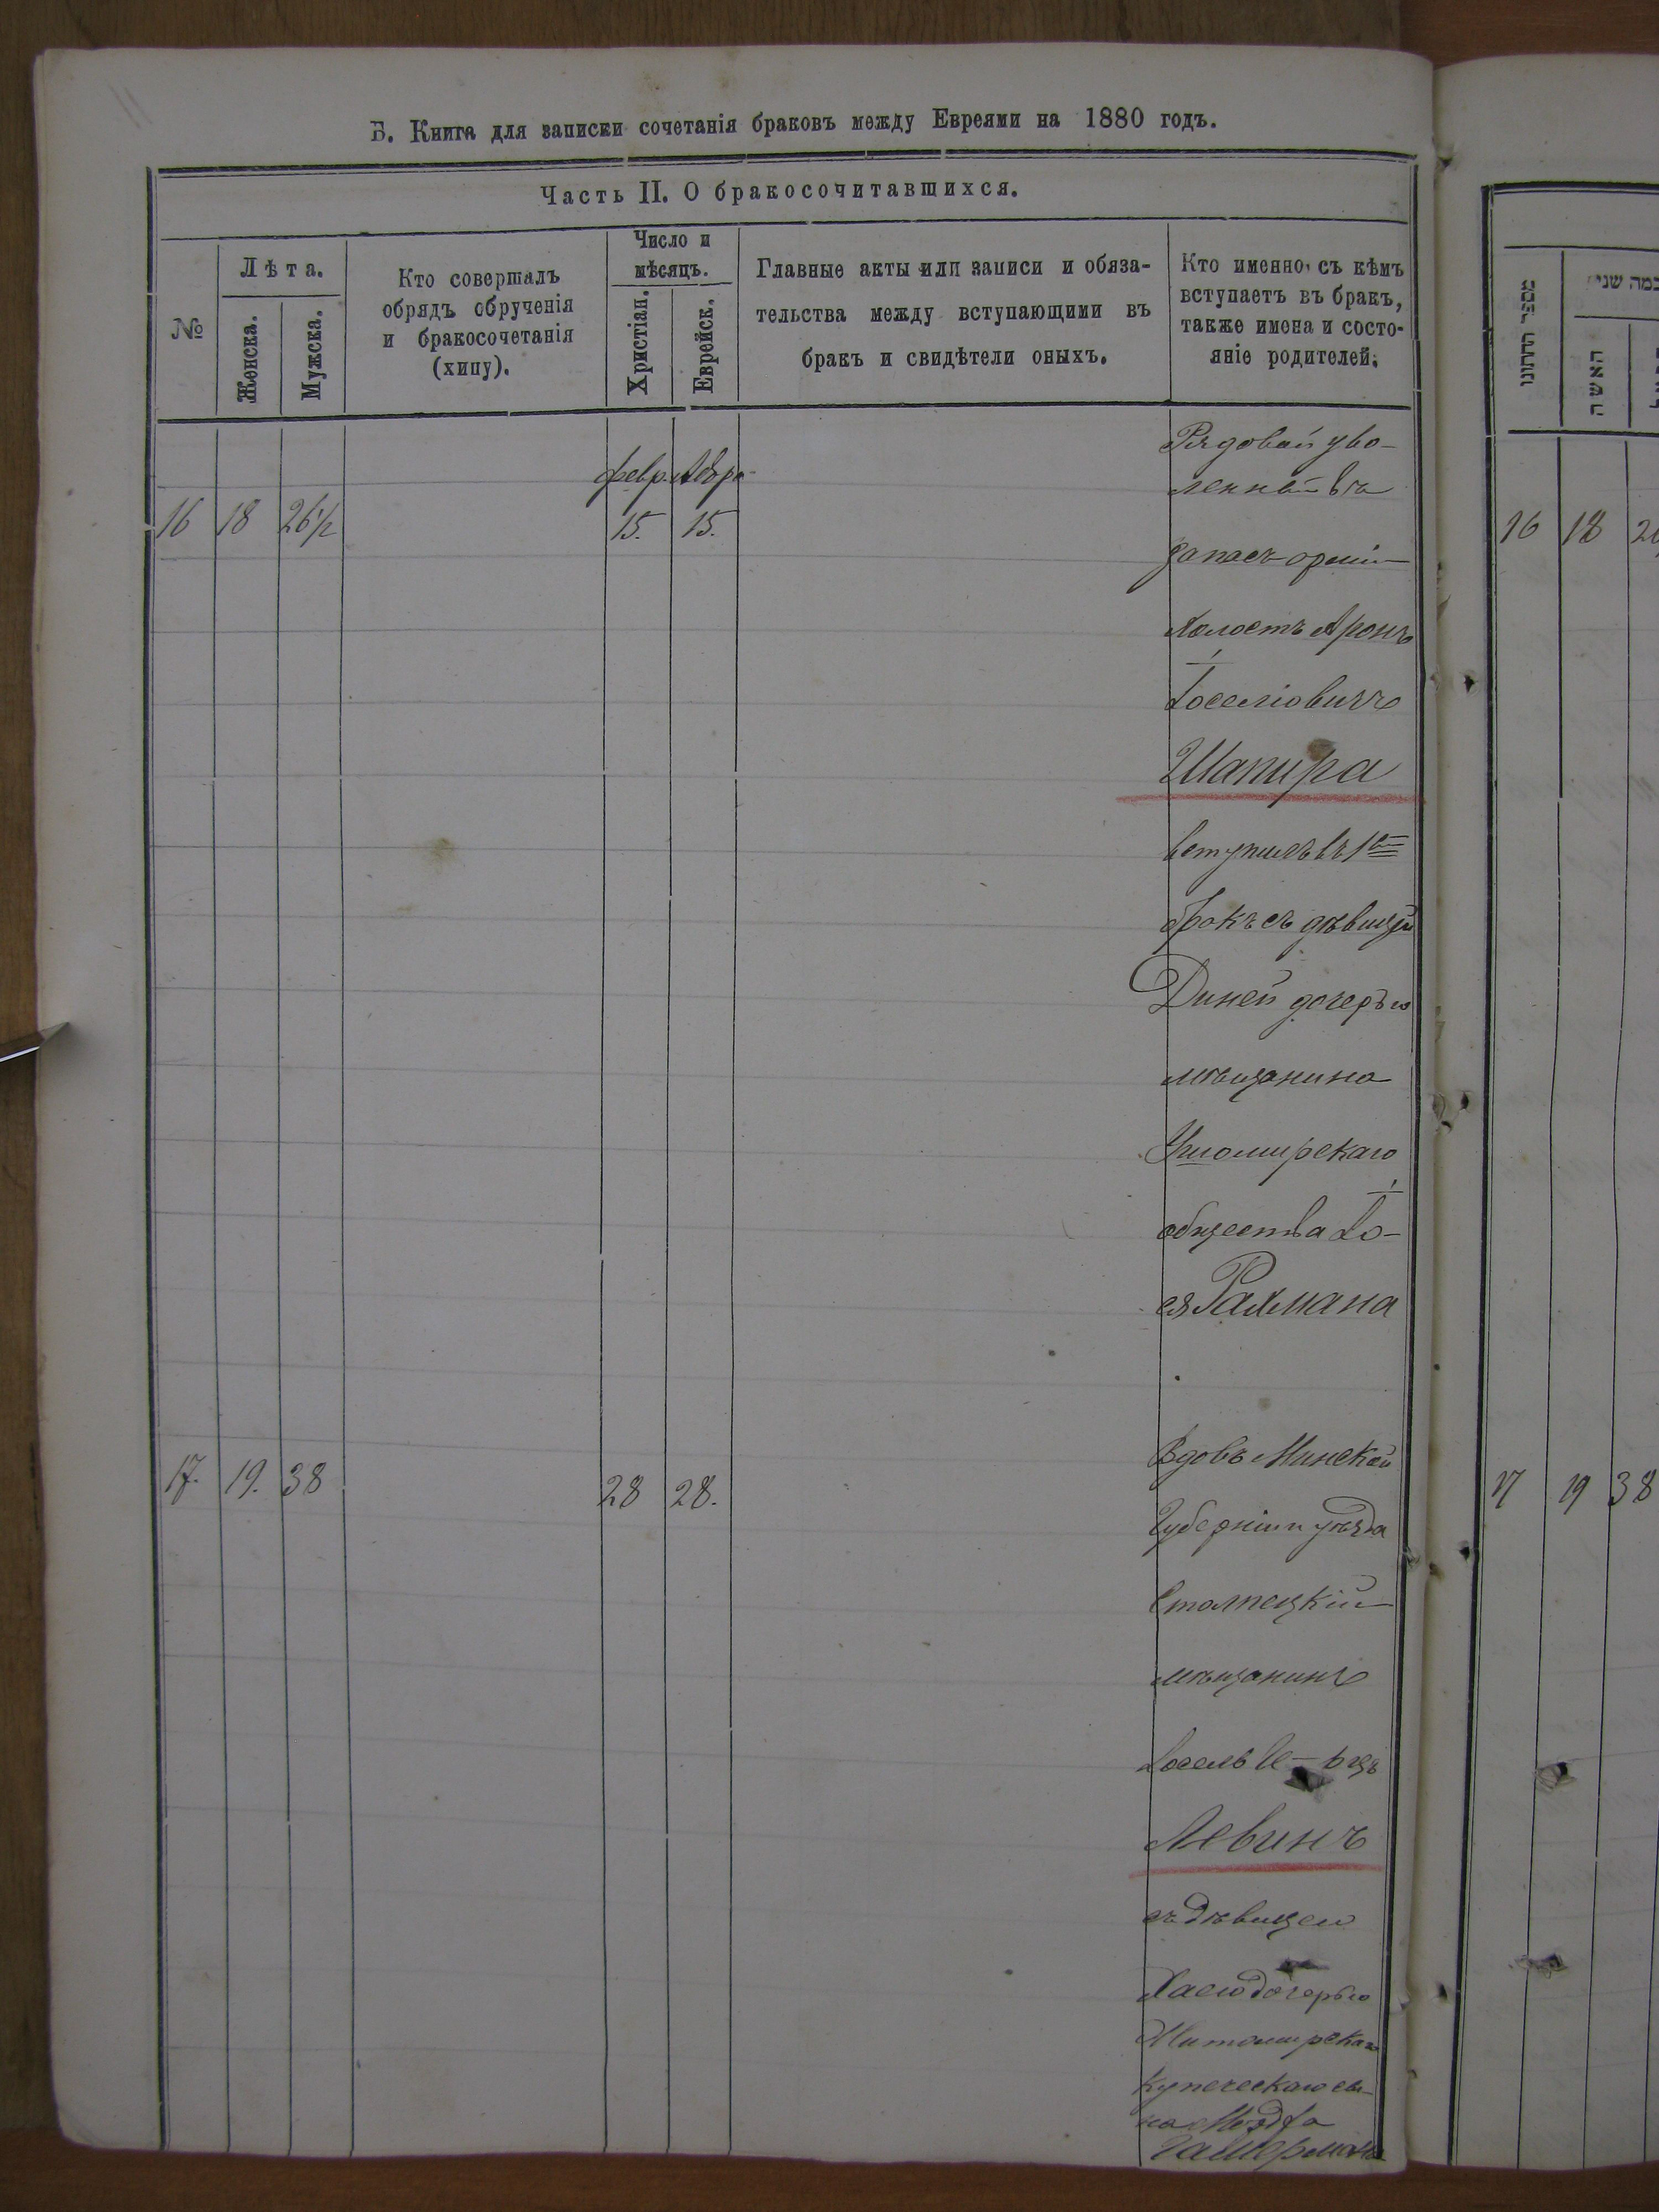 Б. Книга для записки сочетанія браковъ между Евреями на 1880 годъ.
Часть II. О бракосочитавшихся.
№
Лѣта.
Женска.
Мужска.
Кто совершалъ
обрядъ обрученія
и бракосочетанія
(хипу).
Число и
мѣсяцъ.
Христіан.
Еврейск.
Главные акты или записи и обяза-
тельства между вступающими въ
бракъ и свидѣтели оныхъ.
Кто именно съ кѣмъ
вступаетъ въ бракъ,
также имена и состо-
яніе родителей.
16 18 26½ февр. 15. 15.
Рядовой уво-
ленный въ
запасъ арміи
холостъ Аронъ
Іоселіовичъ
Шапира
вступилъ въ 1й
бракъ съ дѣвицей
Диней дочерью
мѣщанина
общества Іо-
ся Рахмана
17. 19. 38 28 28.
Вдовъ Минской
Губерніи и уѣзда
Столпецкій
мѣщанинъ
Іосель
Левинъ
съ дѣвицей
Хасею дочерью
Житомирскаго
купеческаго сы-
на
כמה שני
האשה
16 18
17 19 38